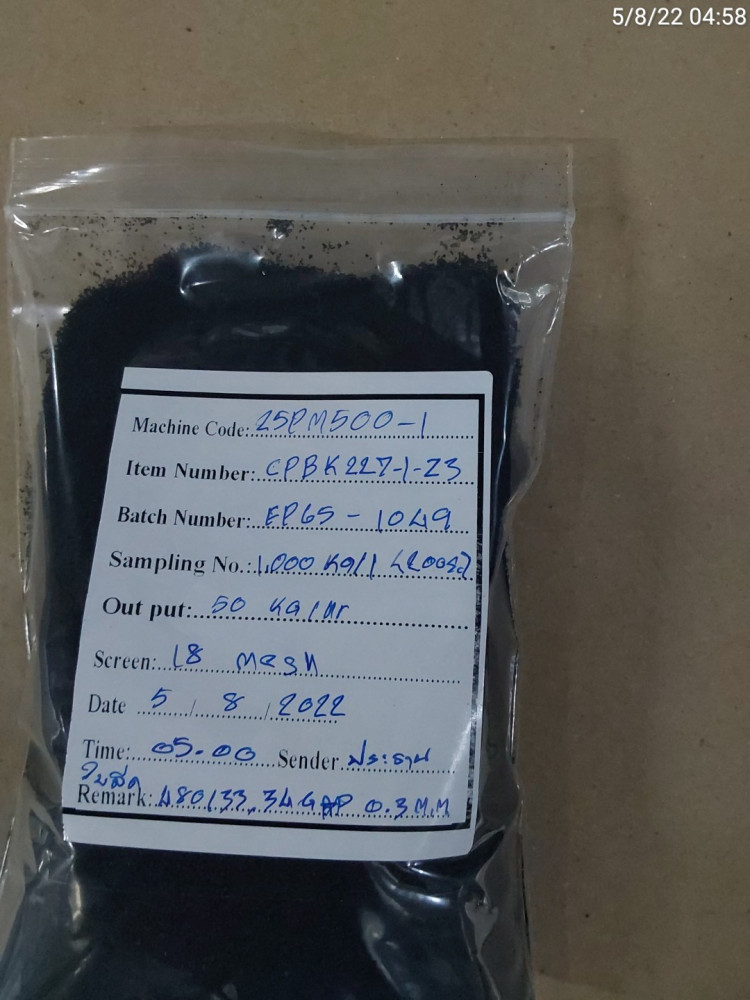 5/8/22 04:58
Machine Code: 25PM500-1
Item Number: CPBK227-1-Z3
Batch Number: EP65-1049
Sampling No.: 1,000 Kg/1
Out put: 50 Kg/Hr
Screen: 18 mesh
Date 5 / 8 / 2022
Time: 05.00 Sender ประธาน
ใบมีด
Remark: 480/33,34 GAP 0.3 M.M